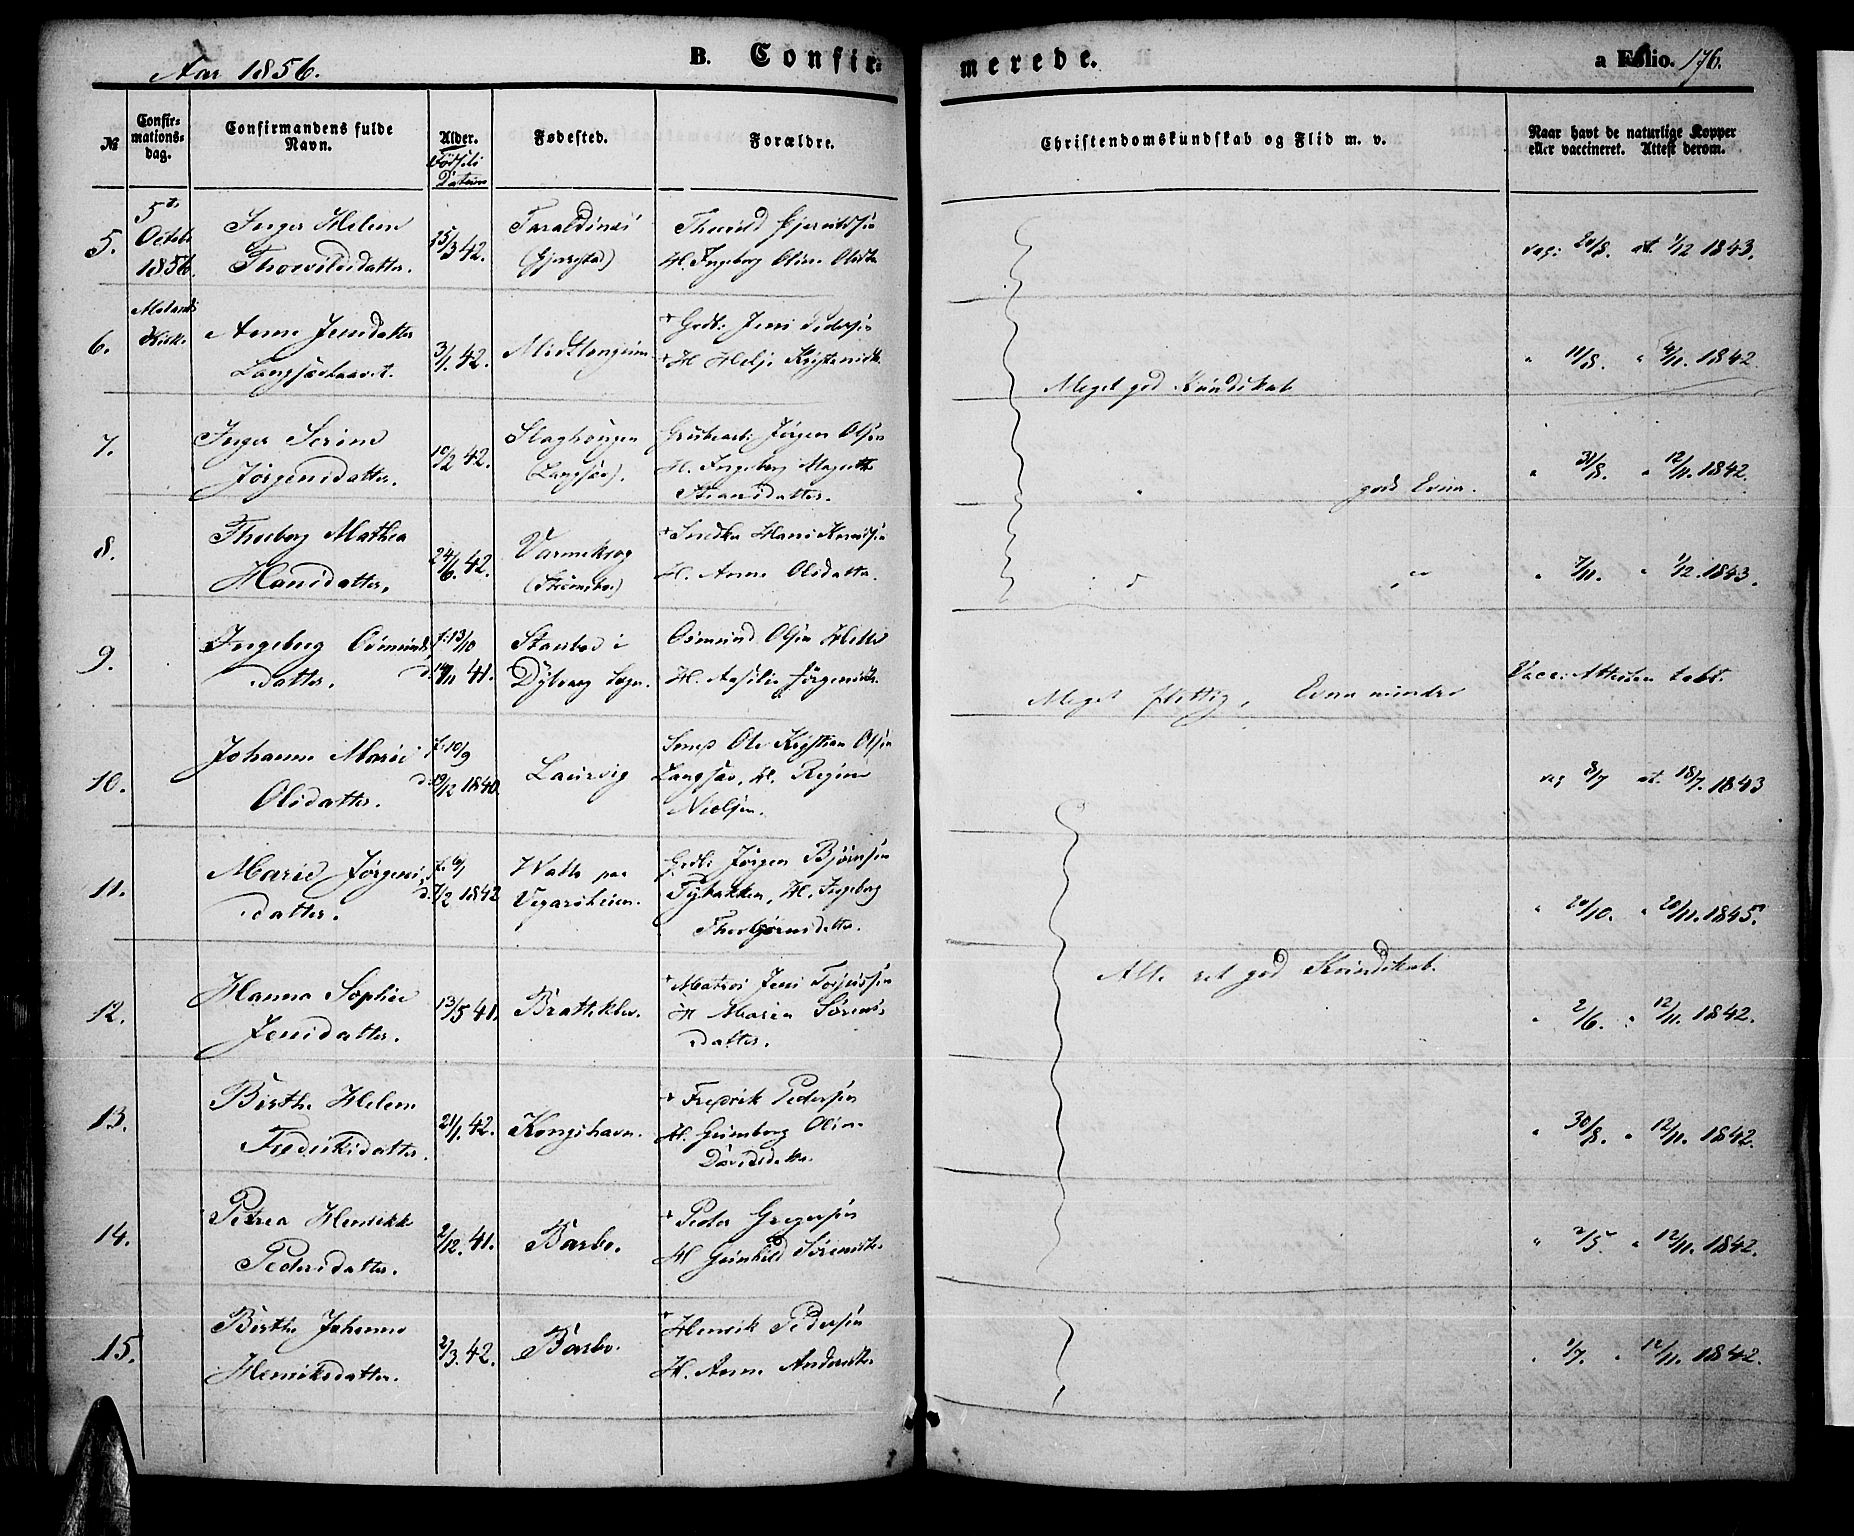 Aar 1856.
B. Confir-
merede.
a Folio. 176.
№
Confir-
mations-
dag.
Confirmandens fulde
Navn.
Alder.
Fødsels
Datum
Fødested.
Forældre.
Christendomskundskab og Flid m. v.
Naar havt de naturlige Kopper
eller vaccineret. Attest derom.
5.
5te
Octobr
1856.
Inger Helene
Thorvildsdatter.
25/3 42.
(Gjerstad)
H. Ingeborg Oline Olsdtr
vac: 20/8. at. 1/12 1843.
6.
Kirke
Anne Jensdatter
3/1. 42.
Gbdb: Jens Pedersen
H. Helje Kristensdtr
Meget god Kundskab
" 11/8. " 4/11. 1842.
7.
Inger Serine
Jørgensdatter.
10/2 42.
(Langsæe).
Grubearb: Jørgen Olsen
H. Ingeborg
" god Evne.
" 31/8. " 12/11. 1842.
8.
Thorborg Mathea
Hansdatter.
24/6. 42.
H. Anne Olsdatter.
" 7/11. " 1/12. 1843.
9.
Ingeborg Osmunds
datter.
f. 13/10
d. 14/11 41.
Staubø i
Dybvaag Sogn.
Osmund Olsen
H. Jørgensdtr.
Meget flittig, Evne mindre
Vacc: Attesten tabt.
10.
Johanne Marie
Olsdatter.
f. 10/9
d. 19/12 1840.
Laurvig
Ole Kristian Olsen
Langsæe, H. Regine
Nielsen.
vac 8/7 at. 18/7. 1843
11.
Marie Jørgens
datter.
f. 6/1
d. 7/2 1842
paa
Vegarsheien.
Gbdb: Jørgen Bjørnsen
H. Ingeborg
Thorbjørnsdatter.
" 20/10. " 20/11. 1845.
12.
Hanna Sophie
Jensdatter.
13/5 41.
Bratteklev.
Matros Jens
H Maren Sørens-
datter.
Alle ret god Kundskab.
" 2/6. " 12/11. 1842.
13.
Birthe Helene
Frediksdatter.
21/1. 42.
Kongshavn.
Fredrik Pedersen
H. Gunborg Oline
Davidsdatter.
" 30/8. " 12/11. 1842.
14.
Petrea Henrikke
Pedersdatter.
2/12. 41.
Barbo.
Peder Gregersen
H Gunhild Sørensdtr.
" 2/5. " 12/11. 1842.
15.
Birthe Johanne
Henriksdatter.
2/3. 42.
Barbo.
Henrik Pedersen
H. Anne Andersdtr.
" 1/7. " 12/11. 1842.